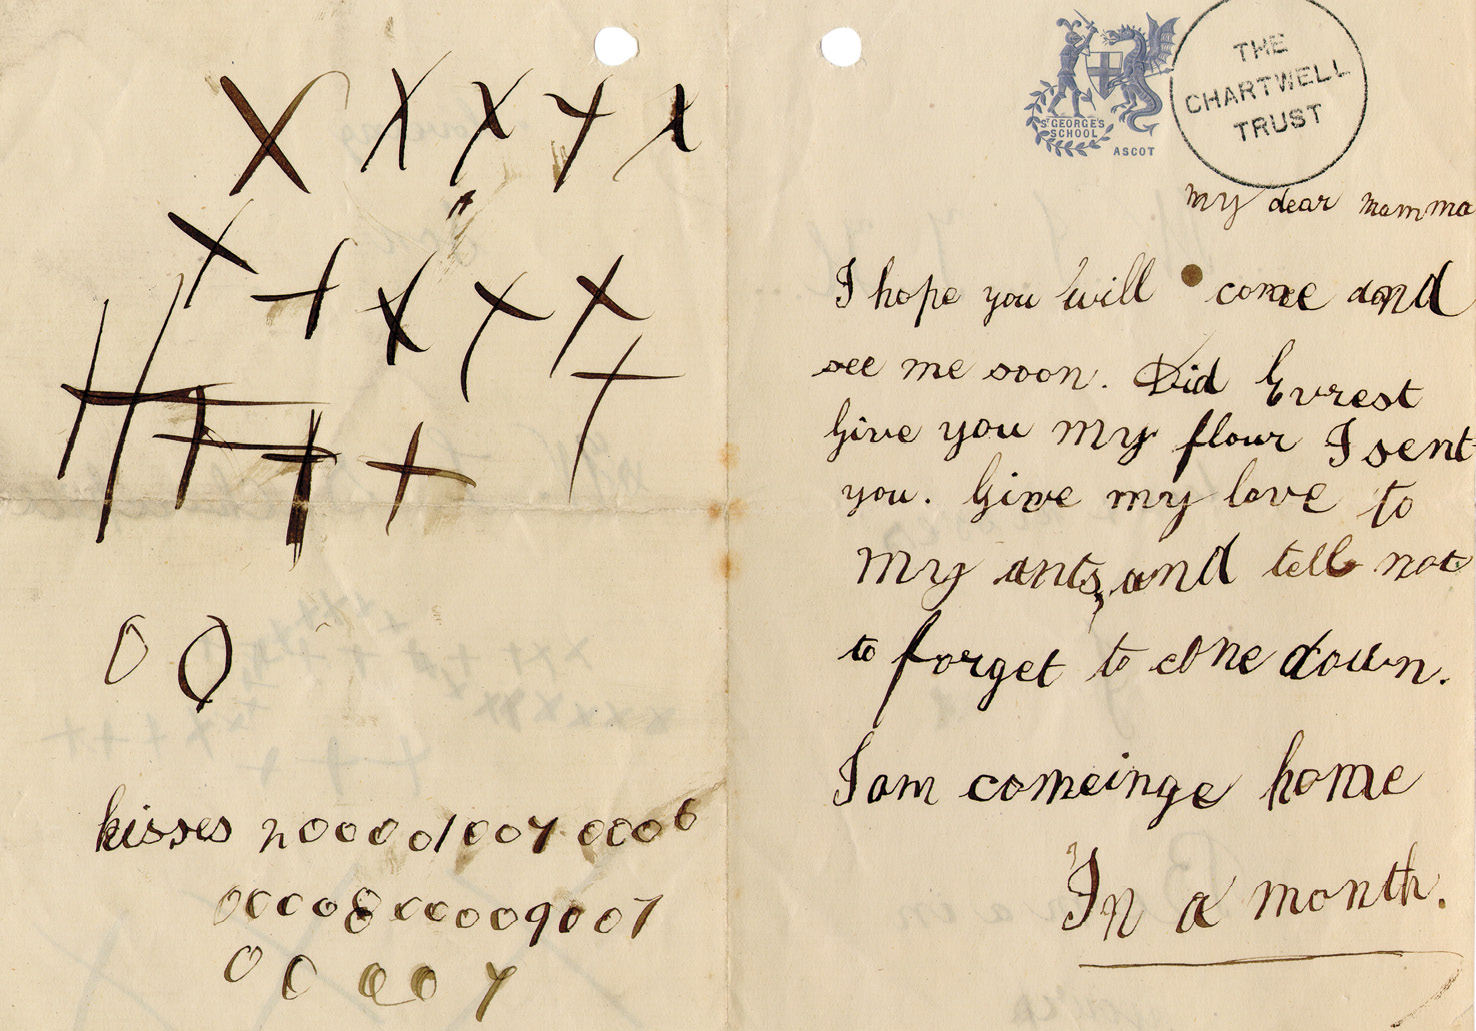 ST GEORGE'S
SCHOOL
ASCOT
THE
CHARTWELL
TRUST
My dear Mamma
I hope you will come and
see me soon. Did Evrest
give you my flour I sent
you. Give my love to
my ants, and tell not
to forget to come down.
I am comeinge home
In a month.
X X X X X
X X X X X
X X X X X X
O O
kisses 2000010070006
00008000009007
00007